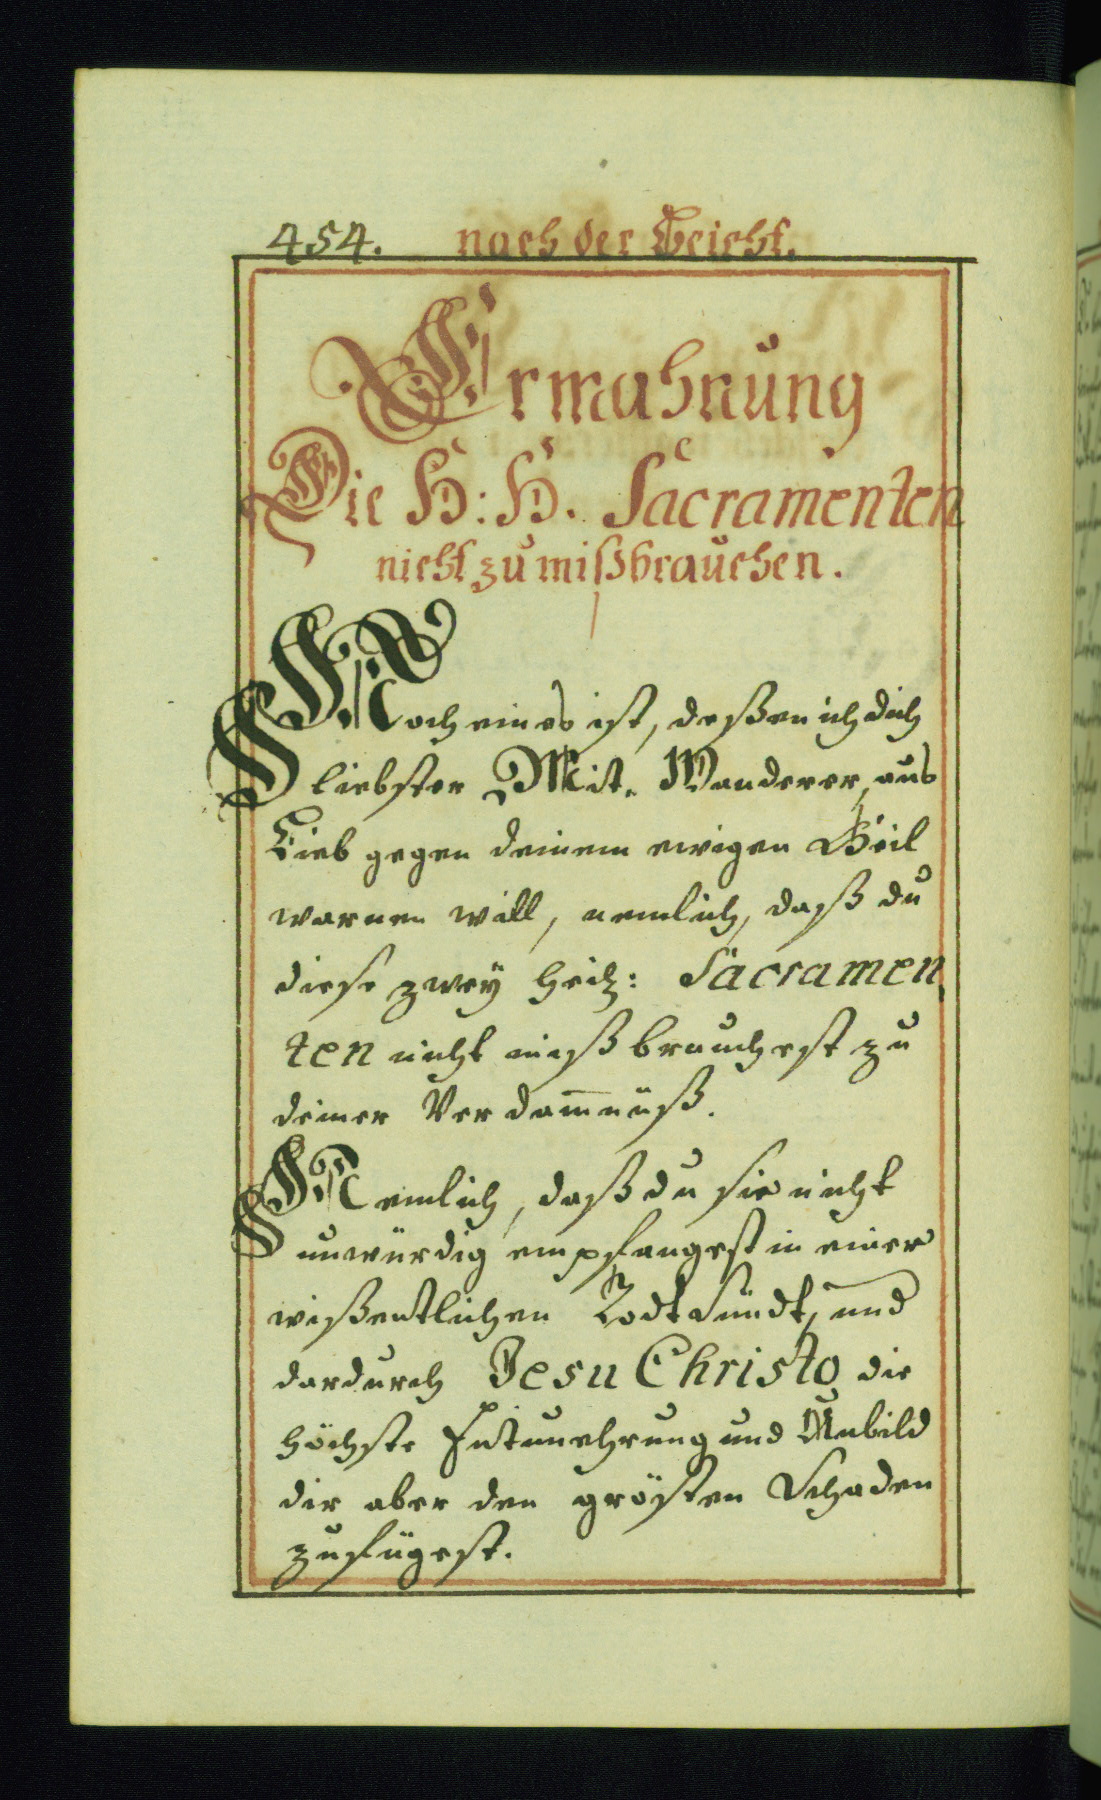 454. nach der Beicht.
Ermahnung
Die H: H. Sacramenten
nicht zu mißbrauchen.
Noch eines ist, deßen ich dich
liebster Mit-Wanderer, aus
Lieb gegen deinem ewigen Heil
warnen will, nemlich, daß du
diese zwey heil: Sacramen,
ten nicht mißbrauchest zu
deiner Verdam̄nüß.
Nemlich, daß du sie nicht
unwürdig empfangest in einer
wißentlichen Todt Sündt, und
dardurch Jesu Christo die
höchste Entunehrung und Unbild
dir aber den grösten Schaden
zufügest.